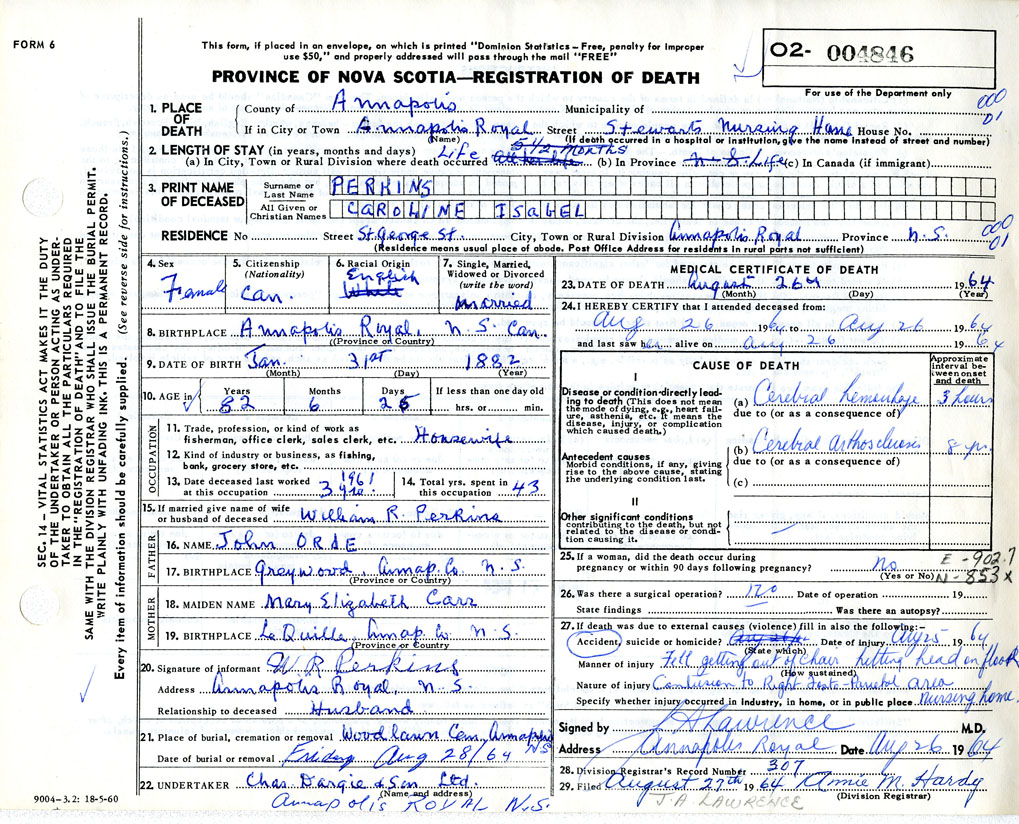 FORM 6
This form, if placed in an envelope, on which is printed "Dominion Statistics – Free, penalty for improper
use $50," and properly addressed will pass through the mail "FREE"
O2- 004846
PROVINCE OF NOVA SCOTIA—REGISTRATION OF DEATH
For use of the Department only
000
01
1. PLACE OF DEATH
County of Annapolis Municipality of
If in City or Town Annapolis Royal Street Stewarts Nursing Home House No.
(Name) (If death occurred in a hospital or institution, give the name instead of street and number)
2. LENGTH OF STAY (in years, months and days) Life 5 1/2 Months
(a) In City, Town or Rural Division where death occurred (b) In Province N.S. Life (c) In Canada (if immigrant)
3. PRINT NAME OF DECEASED
Surname or Last Name PERKINS
All Given or Christian Names CAROLINE ISABEL
RESIDENCE No Street St. George St. City, Town or Rural Division Annapolis Royal Province N.S.
000
01
(Residence means usual place of abode. Post Office Address for residents in rural parts not sufficient)
4. Sex
Female
5. Citizenship
(Nationality)
Can.
6. Racial Origin
English
White
7. Single, Married, Widowed or Divorced
(write the word)
married
8. BIRTHPLACE Annapolis Royal, N.S. Can.
(Province or Country)
9. DATE OF BIRTH Jan. 31st 1882
(Month) (Day) (Year)
10. AGE in
Years Months Days If less than one day old
82 6 25 hrs. or min.
OCCUPATION
11. Trade, profession, or kind of work as
fisherman, office clerk, sales clerk, etc. Housewife
12. Kind of industry or business, as fishing,
bank, grocery store, etc.
13. Date deceased last worked
at this occupation 1961 3 yrs.
14. Total yrs. spent in
this occupation 43
15. If married give name of wife
or husband of deceased William R. Perkins
FATHER
16. NAME John ORDE
17. BIRTHPLACE Greywood, Annap. Co. N.S.
(Province or Country)
MOTHER
18. MAIDEN NAME Mary Elizabeth Carr
19. BIRTHPLACE Le Quille, Annap. Co. N.S.
(Province or Country)
20. Signature of informant W R Perkins
Address Annapolis Royal, N.S.
Relationship to deceased Husband
21. Place of burial, cremation or removal Woodlawn Cem, Annapolis
NS
Date of burial or removal Friday Aug 28/64
22. UNDERTAKER Chas. Dargie & Son Ltd.
(Name and address)
Annapolis ROYAL N.S.
MEDICAL CERTIFICATE OF DEATH
23. DATE OF DEATH August 26th 1964
(Month) (Day) (Year)
24. I HEREBY CERTIFY that I attended deceased from:
Aug 26 1964 to Aug 26 1964
and last saw her alive on Aug 26 1964
CAUSE OF DEATH
Approximate interval between onset and death
I
Disease or condition directly leading to death (This does not mean the mode of dying, e.g., heart failure, asthenia, etc. It means the disease, injury, or complication which caused death.)
(a) Cerebral hemorrhage 3 hours
due to (or as a consequence of)
Antecedent causes
Morbid conditions, if any, giving rise to the above cause, stating the underlying condition last.
(b) Cerebral Arthosclerosis 8 yr.
due to (or as a consequence of)
(c)
II
Other significant conditions
contributing to the death, but not related to the disease or condition causing it.
25. If a woman, did the death occur during
pregnancy or within 90 days following pregnancy? No
(Yes or No)
E - 902.7
N - 853x
26. Was there a surgical operation? no Date of operation 19
State findings Was there an autopsy?
27. If death was due to external causes (violence) fill in also the following:
Accident, suicide or homicide? Date of injury Aug 25 1964
(State which)
Manner of injury Fell getting out of chair hitting head on floor
(How sustained)
Nature of injury Contusion to Right Area
Specify whether injury occurred in industry, in home, or in public place nursing home
Signed by J A Lawrence M.D.
Address Annapolis Royal Date Aug 26 1964
28. Division Registrar's Record Number 307
29. Filed August 27th 1964 Annie M. Hardy
(Division Registrar)
J.A. LAWRENCE
9004-3.2: 18-5-60
SEC. 14 – VITAL STATISTICS ACT MAKES IT THE DUTY
OF THE UNDERTAKER OR PERSON ACTING AS UNDER-
TAKER TO OBTAIN ALL THE PARTICULARS REQUIRED
IN THE "REGISTRATION OF DEATH" AND TO FILE THE
SAME WITH THE DIVISION REGISTRAR WHO SHALL ISSUE THE BURIAL PERMIT.
WRITE PLAINLY WITH UNFADING INK. THIS IS A PERMANENT RECORD.
Every item of information should be carefully supplied. (See reverse side for instructions.)